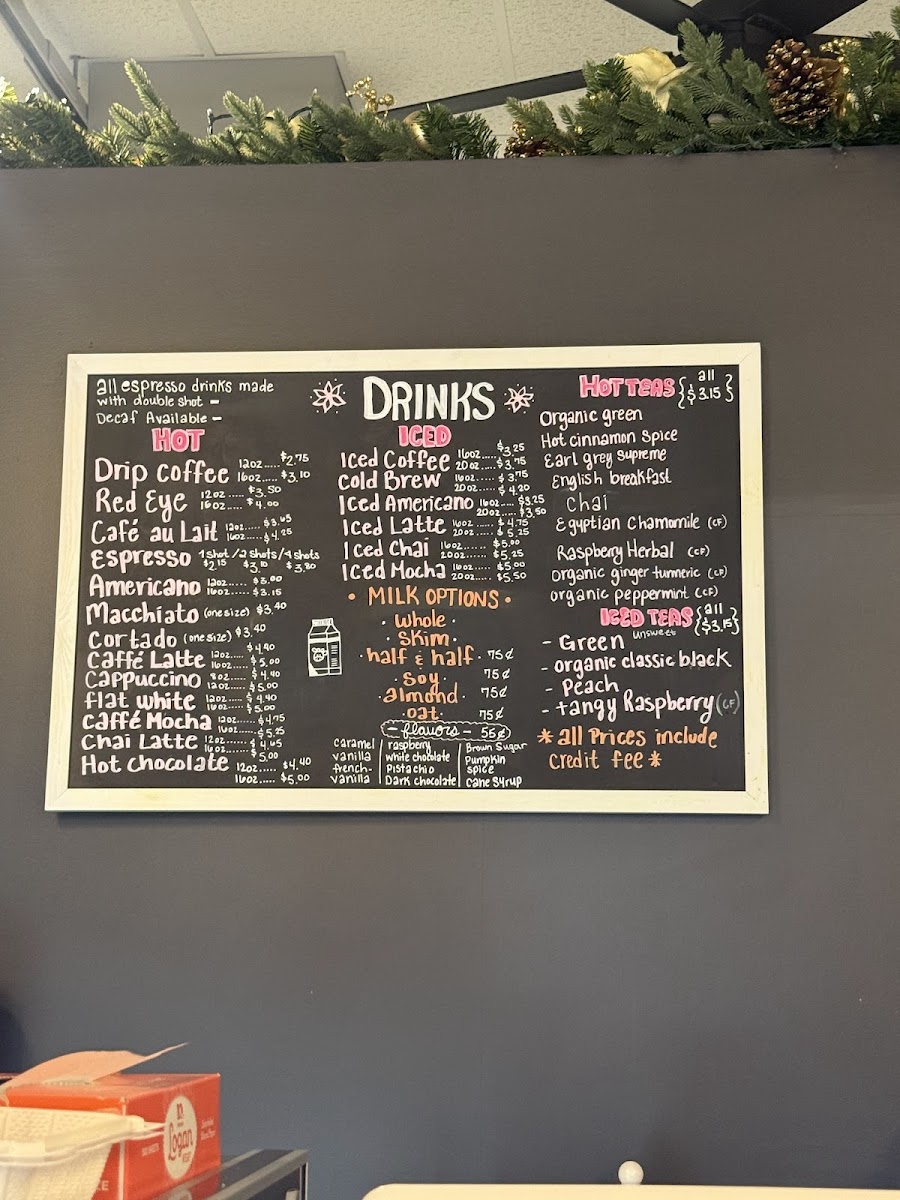 all espresso drinks made
with double shot -
Decaf Available -
HOT
Drip coffee 12oz.....$2.75
16oz.....$3.10
Red Eye 12oz.....$3.50
16oz.....$4.00
Café au Lait 12oz.....$3.65
16oz.....$4.25
Espresso 1 shot / 2 shots / 4 shots
$2.15 $3.10 $3.80
Americano 12oz.....$3.00
16oz.....$3.15
Macchiato (one size) $3.40
Cortado (one size) $3.40
Caffé Latte 12oz.....$4.40
16oz.....$5.00
Cappuccino 8oz.....$4.40
12oz.....$5.00
flat white 12oz.....$4.40
16oz.....$5.00
Caffé Mocha 12oz.....$4.75
16oz.....$5.25
Chai Latte 12oz.....$4.65
16oz.....$5.00
Hot chocolate 12oz.....$4.40
16oz.....$5.00
DRINKS
ICED
Iced Coffee 16oz.....$3.25
20oz.....$3.75
Cold Brew 16oz.....$3.75
20oz.....$4.20
Iced Americano 16oz.....$3.25
20oz.....$3.50
Iced Latte 16oz.....$4.75
20oz.....$5.25
Iced Chai 16oz.....$5.00
20oz.....$5.25
Iced Mocha 16oz.....$5.00
20oz.....$5.50
• MILK OPTIONS •
· whole ·
· skim ·
· half & half · 75¢
· soy · 75¢
· almond · 75¢
· oat · 75¢
- flavors - 55¢
caramel
vanilla
french-
vanilla
raspberry
white chocolate
Pistachio
Dark chocolate
Brown Sugar
Pumpkin
spice
cane syrup
HOT TEAS {all
$3.15}
Organic green
Hot cinnamon spice
Earl grey supreme
English breakfast
Chai
Egyptian Chamomile (CF)
Raspberry Herbal (CF)
Organic ginger turmeric (CF)
organic peppermint (CF)
ICED TEAS {all
$3.15}
unsweet
- Green
- organic classic black
- Peach
- tangy Raspberry (CF)
*all Prices include
credit fee*
Logan